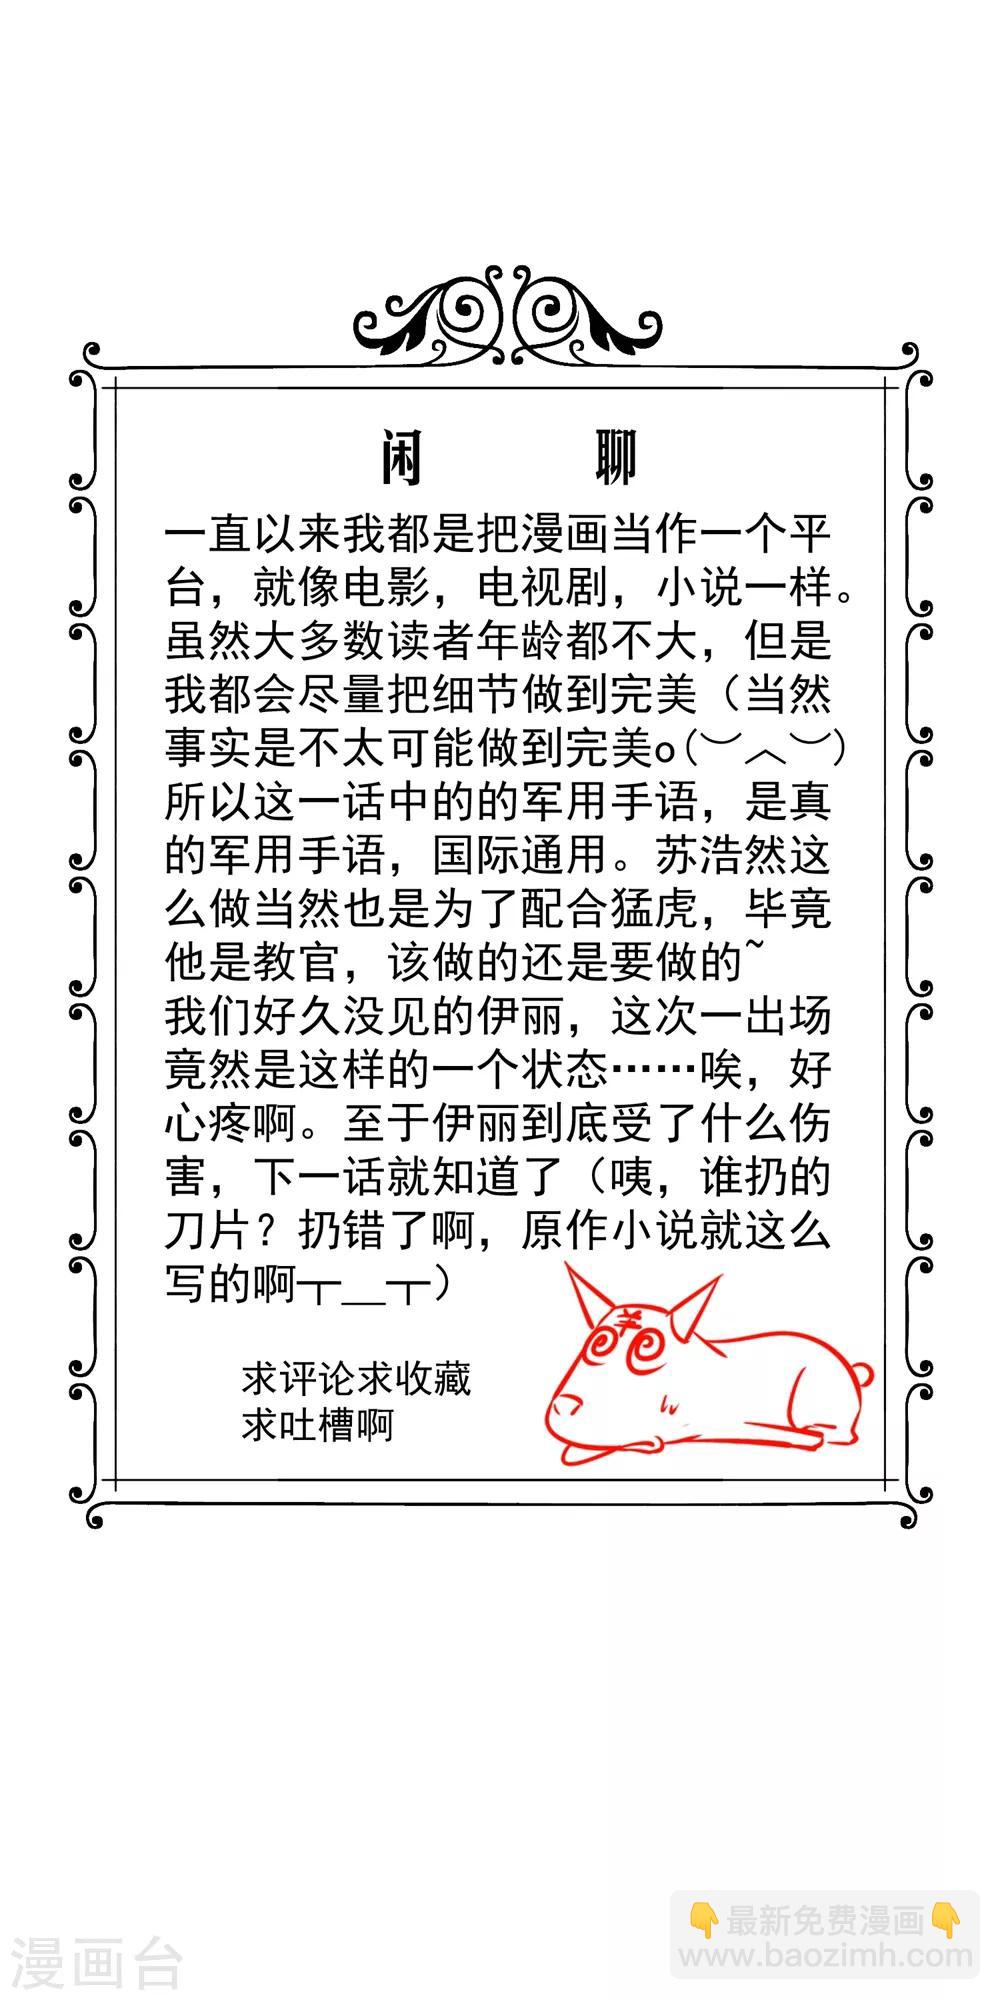 闲 聊
一直以来我都是把漫画当作一个平
台，就像电影，电视剧，小说一样。
虽然大多数读者年龄都不大，但是
我都会尽量把细节做到完美（当然
事实是不太可能做到完美o(︶︿︶)
所以这一话中的的军用手语，是真
的军用手语，国际通用。苏浩然这
么做当然也是为了配合猛虎，毕竟
他是教官，该做的还是要做的~
我们好久没见的伊丽，这次一出场
竟然是这样的一个状态……唉，好
心疼啊。至于伊丽到底受了什么伤
害，下一话就知道了（咦，谁扔的
刀片？扔错了啊，原作小说就这么
写的啊┬＿┬）
求评论求收藏
求吐槽啊
漫画台
👇最新免费漫画👇
www.baozimh.com